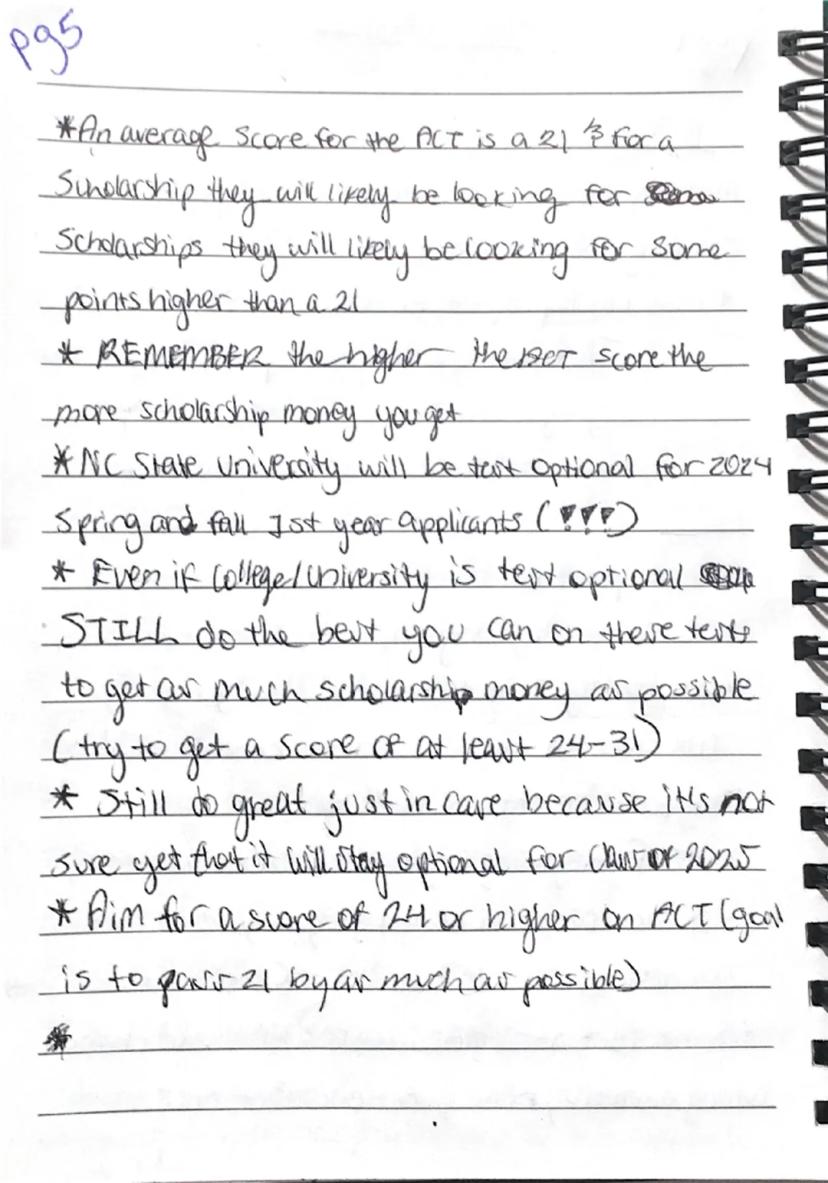 pg5
*An average score for the ACT is a 21 & for a
Scholarship they will likely be looking for
Scholarships they will likely be looking for some
points higher than a 21
* REMEMBER the higher the ACT score the
more scholarship money you get
*NC State University will be test optional for 2024
Spring and fall 1st year applicants (!!!)
* Even if College/University is test optional
STILL do the best you can on these tests
to get as much scholarship money as possible
(try to get a score of at least 24-31)
* Still do great just in case because it's not
sure yet that it will stay optional for Class of 2025
*Aim for a score of 24 or higher on ACT (goal
is to pass 21 by as much as possible)
*